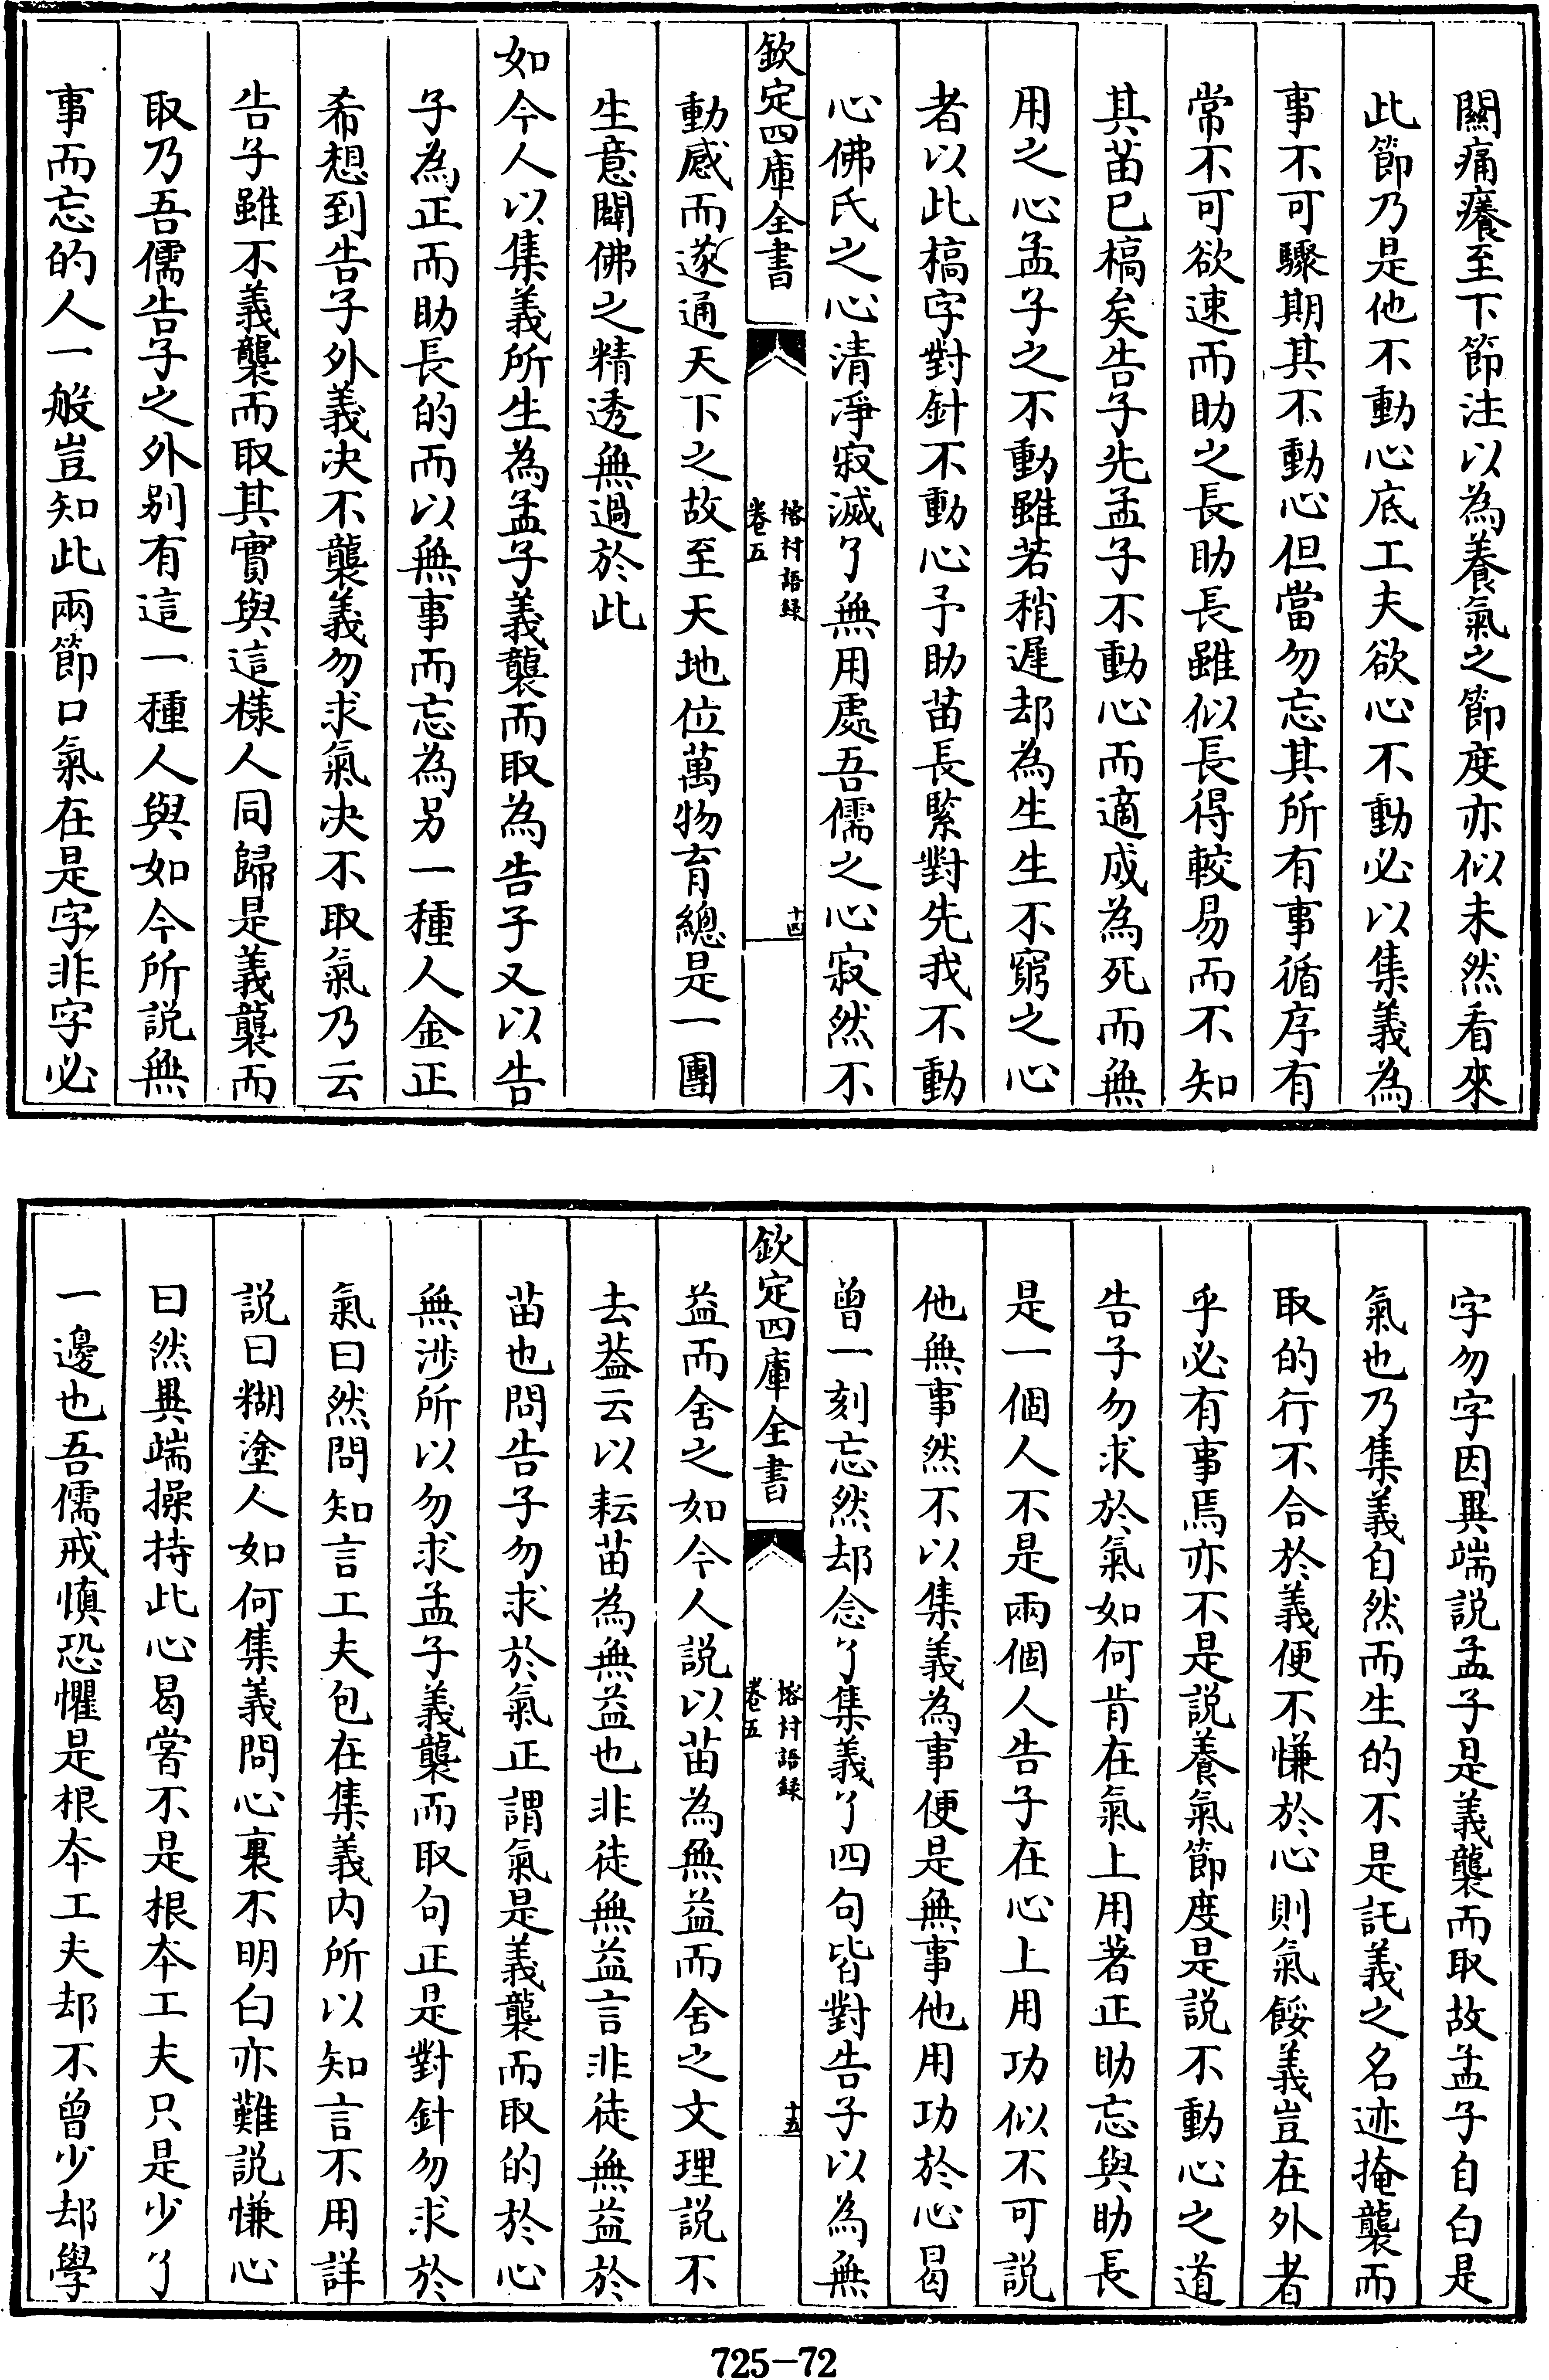 關痛癢至下節注以為養氣之節度亦似未然看來
此節乃是他不動心底工夫欲心不動必以集義為
事不可驟期其不動心但當勿忘其所有事循序有
常不可欲速而助之長助長雖似長得較易而不知
其苗已槁矣告子先孟子不動心而適成為死而無
用之心孟子之不動雖若稍遲却為生生不窮之心
者以此槁字對針不動心予助苗長緊對先我不動
心佛氏之心清淨寂滅了無用處吾儒之心寂然不
欽定四庫全書
榕村語録
卷五
十四
動感而遂通天下之故至天地位萬物育總是一團
生意闢佛之精透無過於此
如今人以集義所生為孟子義襲而取為告子又以告
子為正而助長的而以無事而忘為另一種人金正
希想到告子外義决不襲義勿求氣决不取氣乃云
告子雖不義襲而取其實與這様人同歸是義襲而
取乃吾儒告子之外别有這一種人與如今所説無
事而忘的人一般豈知此兩節口氣在是字非字必
字勿字因異端説孟子是義襲而取故孟子自白是
氣也乃集義自然而生的不是託義之名迹掩襲而
取的行不合於義便不慊於心則氣餒義豈在外者
乎必有事焉亦不是説養氣節度是説不動心之道
告子勿求於氣如何肯在氣上用著正助忘與助長
是一個人不是兩個人告子在心上用功似不可説
他無事然不以集義為事便是無事他用功於心曷
曾一刻忘然却念了集義了四句皆對告子以為無
欽定四庫全書
榕村語録
卷五
十五
益而舍之如今人説以苗為無益而舍之文理説不
去葢云以耘苗為無益也非徒無益言非徒無益於
苗也問告子勿求於氣正謂氣是義襲而取的於心
無涉所以勿求孟子義襲而取句正是對針勿求於
氣曰然問知言工夫包在集義内所以知言不用詳
説曰糊塗人如何集義問心裏不明白亦難説慊心
曰然異端操持此心曷嘗不是根本工夫只是少了
一邊也吾儒戒慎恐懼是根本工夫却不曾少却學
725-72